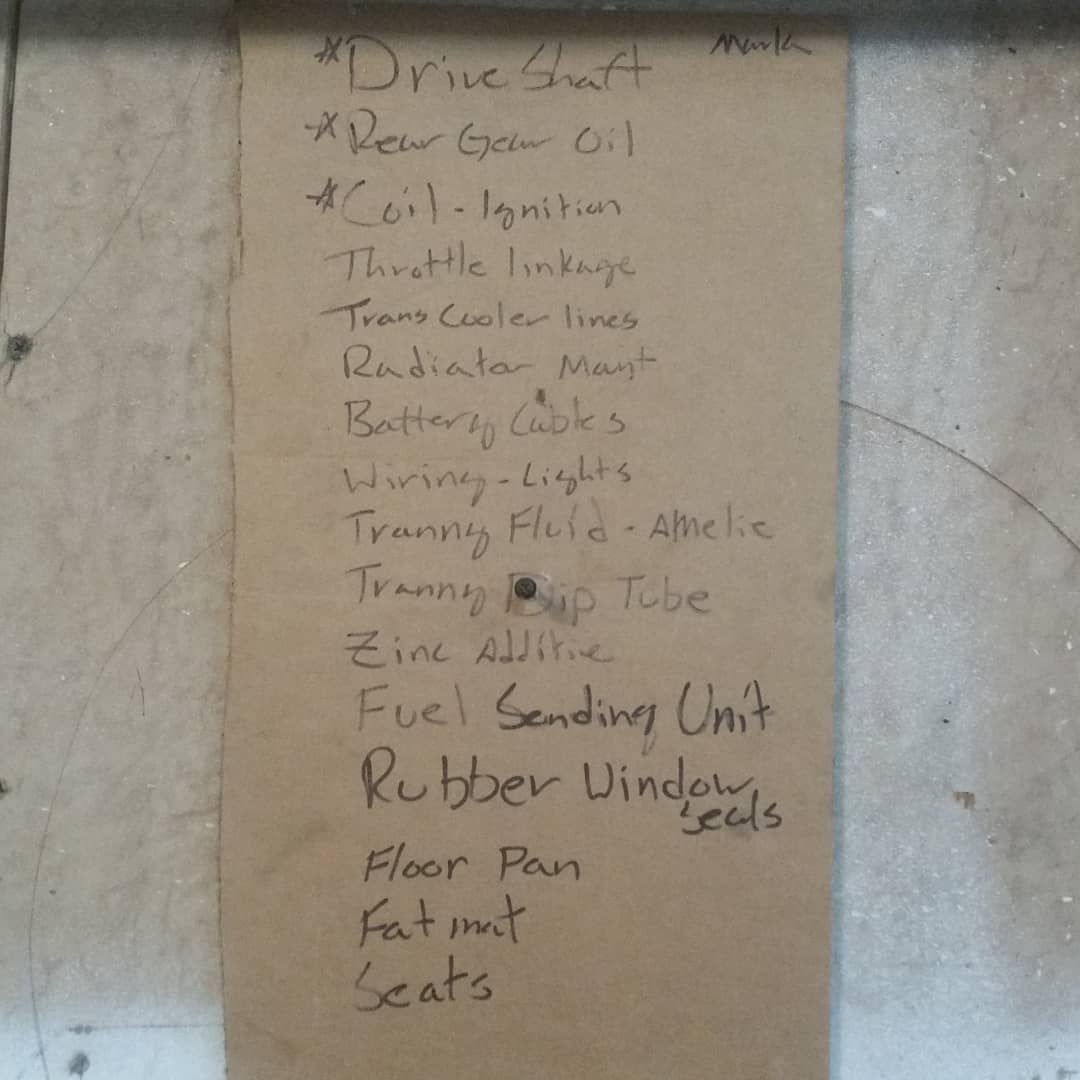 Mark
*Drive Shaft
*Rear Gear Oil
*Coil - Ignition
Throttle linkage
Trans Cooler lines
Radiator Mant
Battery Cables
Wiring - Lights
Tranny Fluid - Amelie
Tranny Dip Tube
Zinc Additie
Fuel Sending Unit
Rubber Window
Seals
Floor Pan
Fat mat
Seats